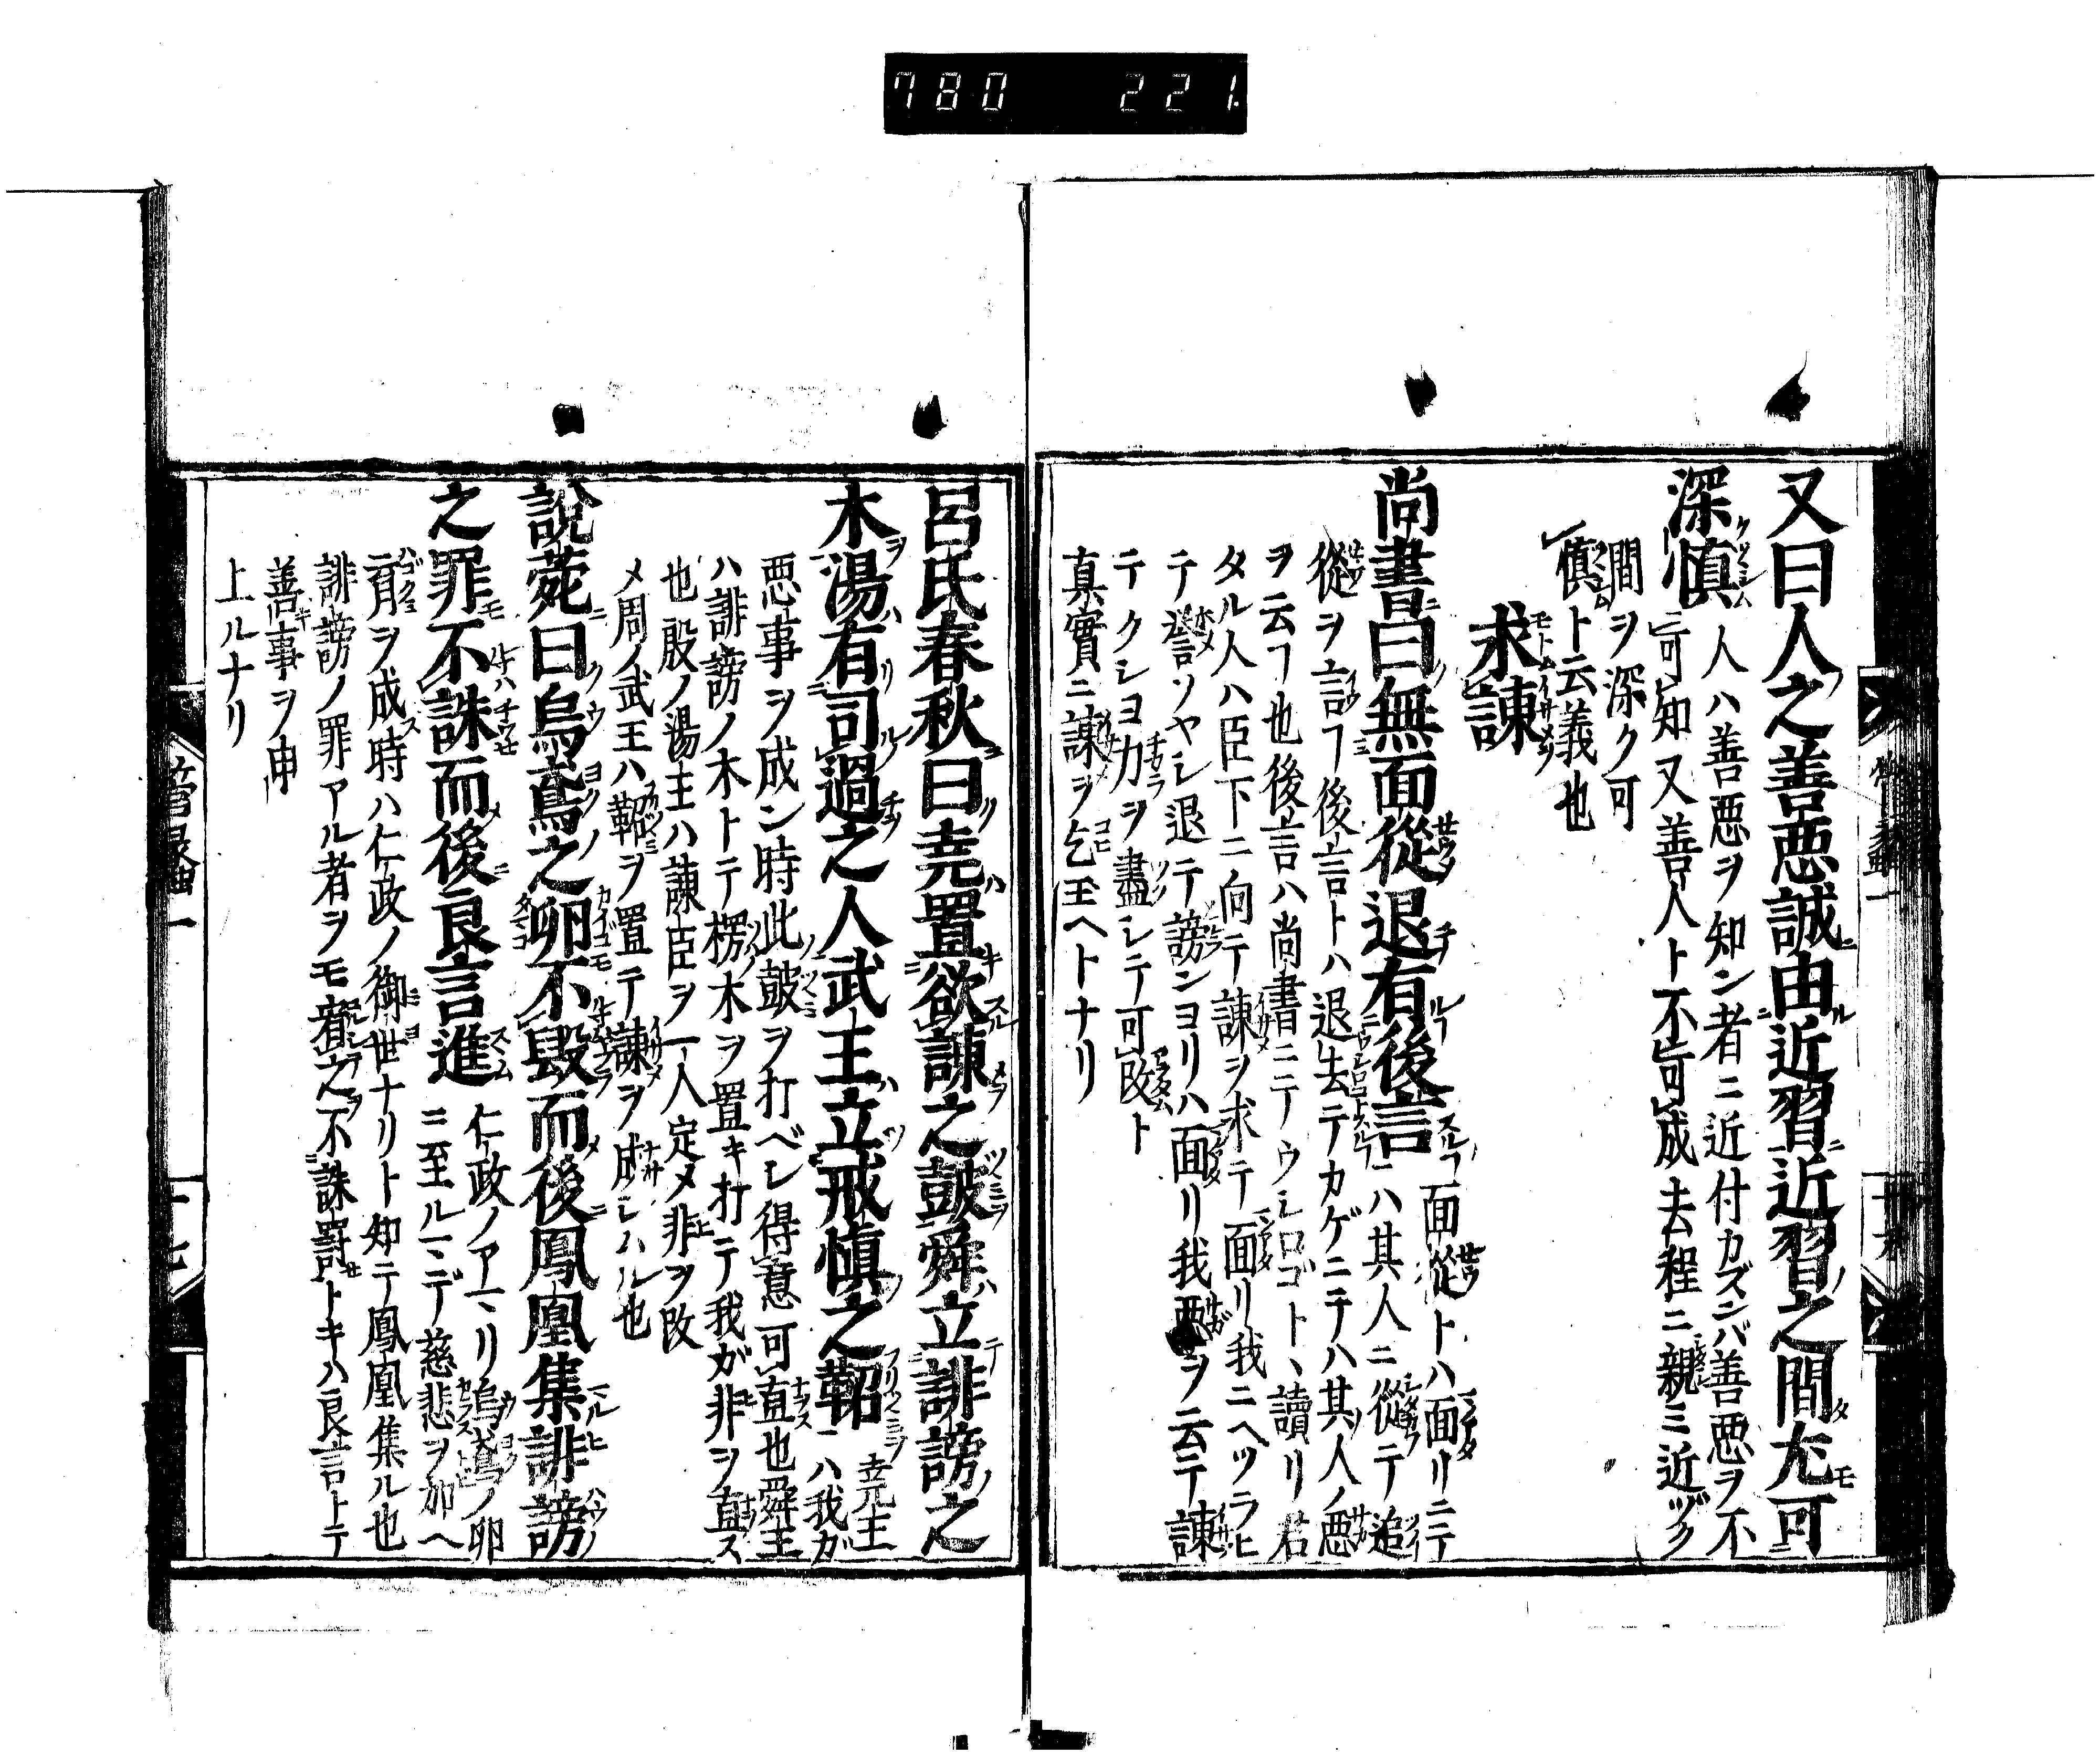 780 221.
又曰人之善惡誠由近習近習之間尤可
深慎 人ハ善悪ヲ知ン者ニ近付カズンバ善悪ヲ不
可知又善人ト不可成去程ニ親ミ近ヅク
間ヲ深ク可
慎ト云義也
求諫
尚書曰無面從退有後言 面從トハ面リニテ
ハ其人ニ從テ追
從ヲ言フ後言トハ退去テカゲニテハ其人ノ悪
ヲ云フ也後言ハ尚書ニテウシロゴトヽ讀リ君
タル人ハ臣下ニ向テ諫ヲ求テ面リ我ニヘツラヒ
テ誉ソヤシ退テ謗ンヨリハ面リ我悪ヲ云テ諫
テクレヨ力ヲ盡シテ可改ト
真實ニ諫ヲ乞玉ヘトナリ
呂氏春秋曰堯置欲諫之鼓舜立誹謗之
木湯有司過之人武王立戒慎之鞀 堯王
ハ我ガ
悪事ヲ成ン時此鼓ヲ打ベシ得意可直也舜王
ハ誹謗ノ木トテ楞木ヲ置キ打テ我ガ非ヲ直ス
也殷ノ湯主ハ諫臣ヲ一人定メ非ヲ改
メ周ノ武王ハ鞀ヲ置テ諫ヲ成シハル也
說苑曰烏鳶之卵不毀而後鳳凰集誹謗
之罪不誅而後良言進 仁政ノアマリ烏鳶ノ卵
ニ至ルマデ慈悲ヲ加ヘ
育ヲ成時ハ仁政ノ御世ナリト知テ鳳凰集ル也
誹謗ノ罪アル者ヲモ宥之不誅罸トキハ良言トテ
善事ヲ申
上ルナリ
管蠡一